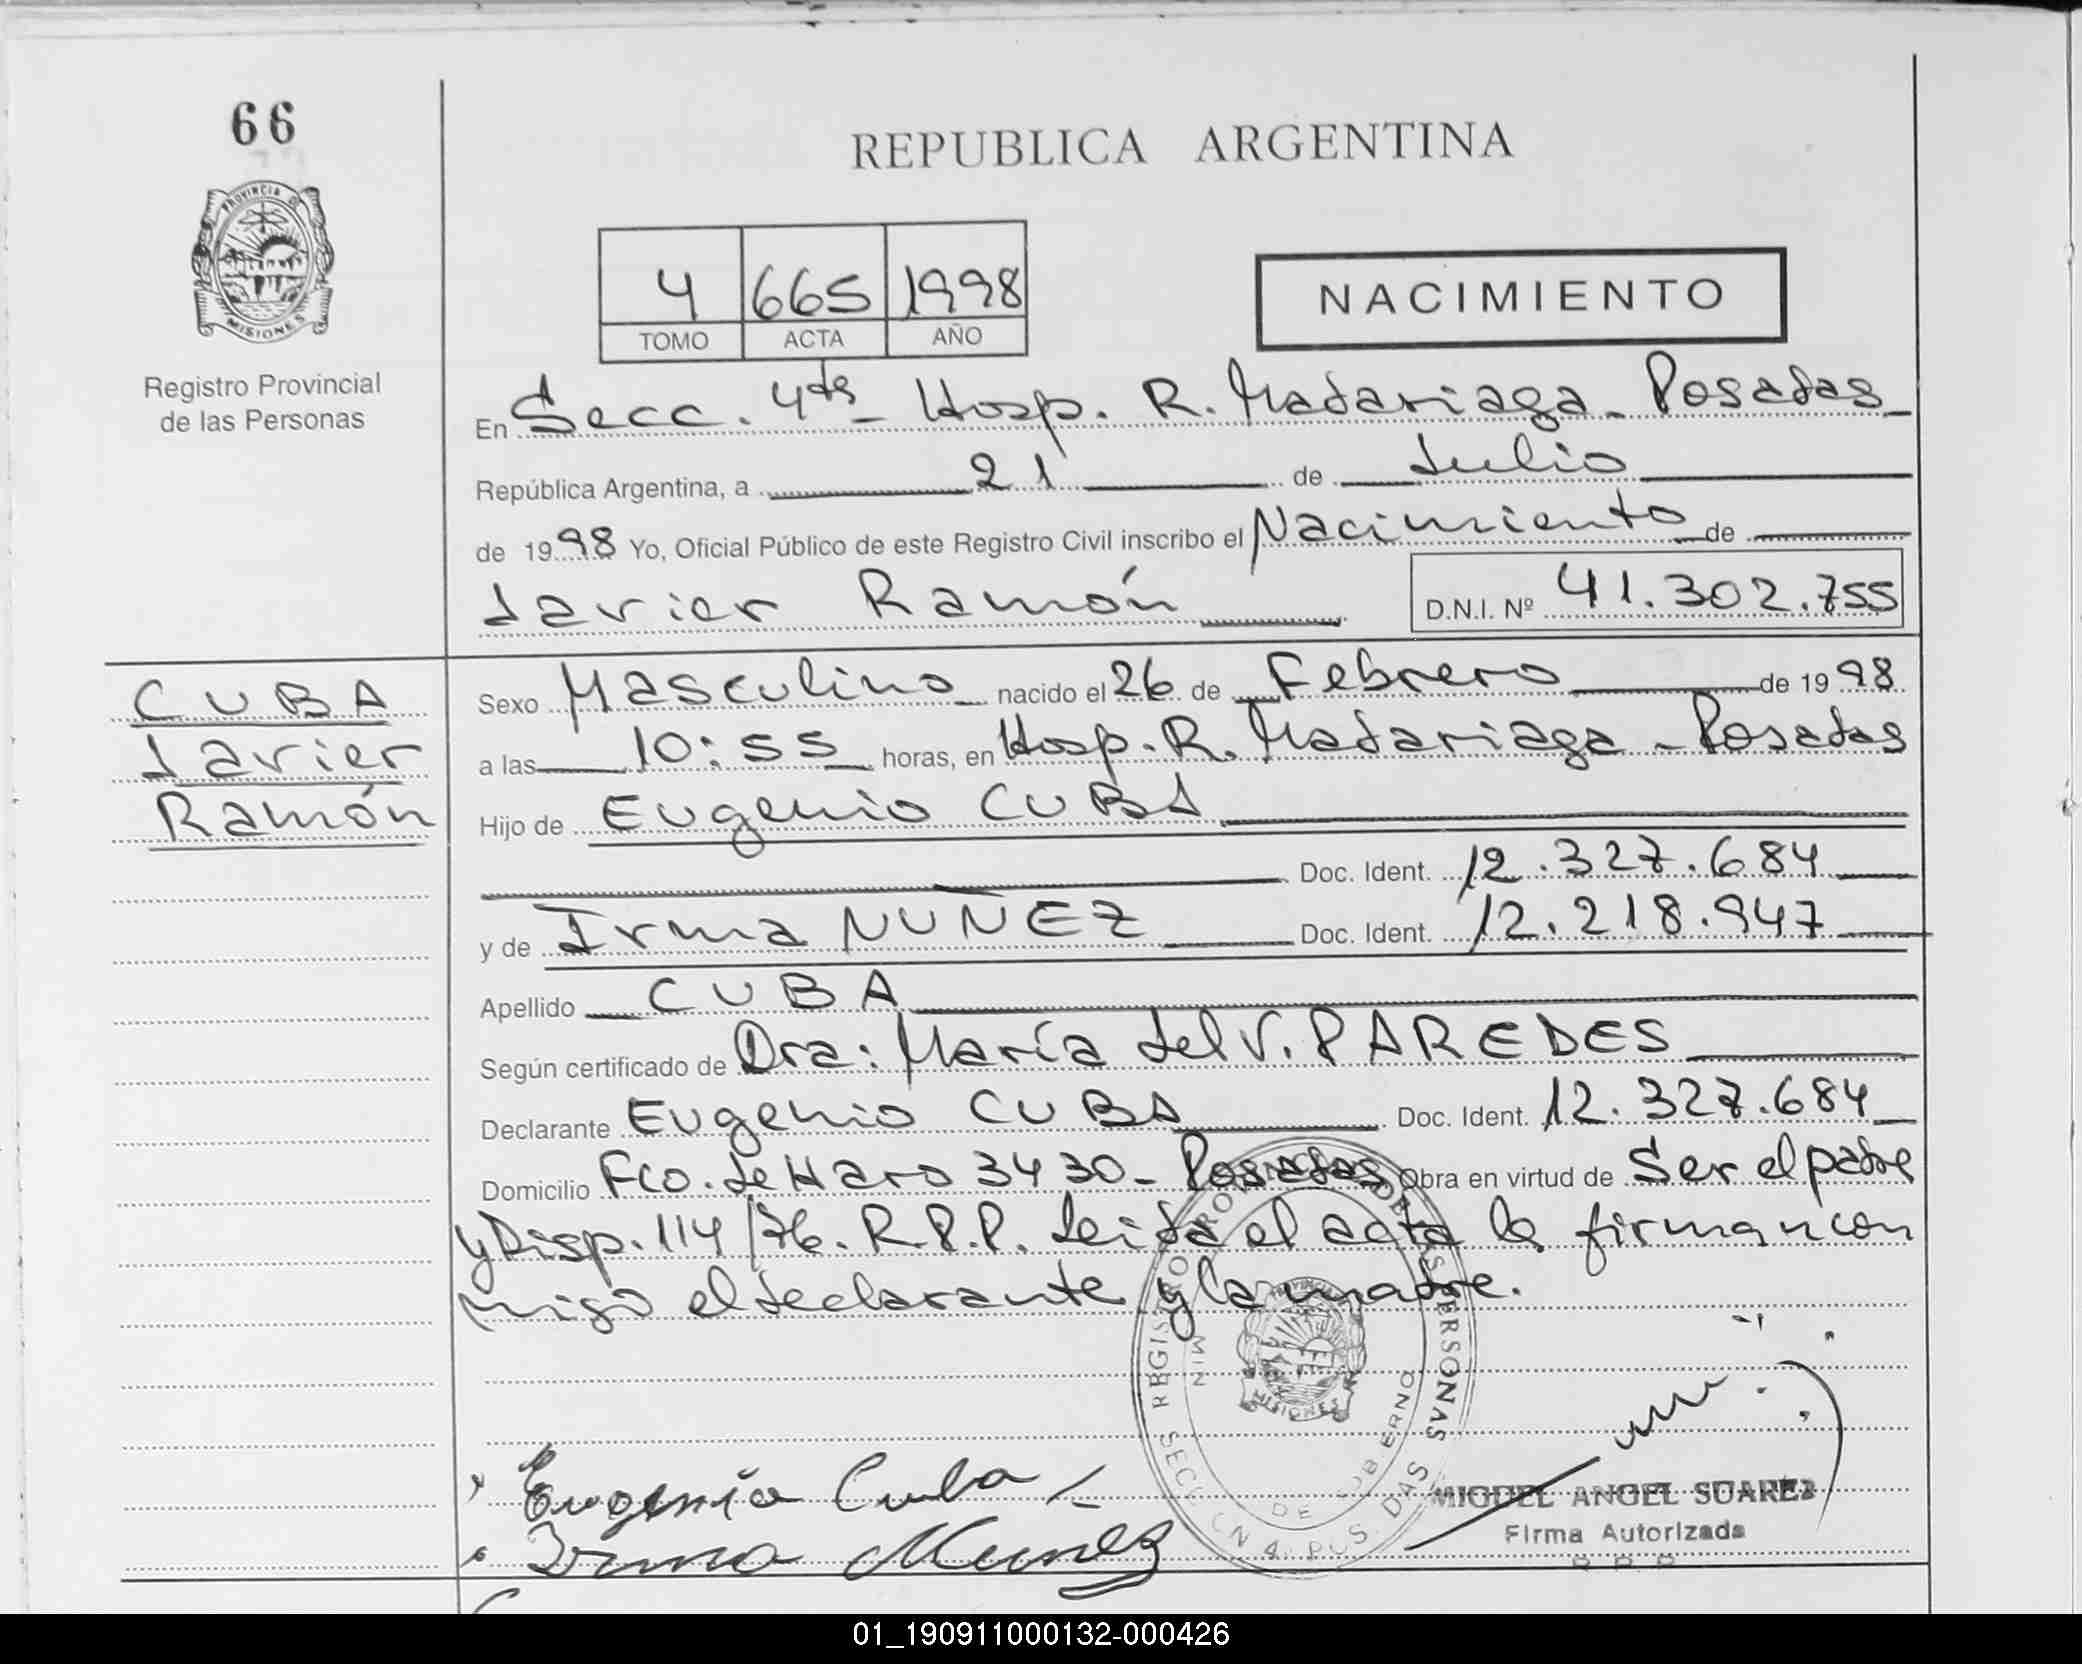 66
PROVINCIA DE
MISIONES
Registro Provincial
de las Personas
REPUBLICA ARGENTINA
4 665 1998
TOMO ACTA AÑO
NACIMIENTO
En Secc. 4ta - Hosp. R. Madariaga - Posadas
República Argentina, a 21 de Julio
de 1998 Yo, Oficial Público de este Registro Civil inscribo el Nacimiento de
Javier Ramón D.N.I. Nº 41.302.755
CUBA
Javier
Ramón
Sexo Masculino nacido el 26 de Febrero de 1998
a las 10:55 horas, en Hosp. R. Madariaga - Posadas
Hijo de Eugenio CUBA
Doc. Ident. 12.327.684
y de Irma NUÑEZ Doc. Ident. 12.218.947
Apellido CUBA
Según certificado de Dra: María del V. PAREDES
Declarante Eugenio CUBA Doc. Ident. 12.327.684
Domicilio Fco. de Haro 3430 - Posadas Obra en virtud de Ser el padre
y Disp. 114/76. R.P.P. Leida el acta la firman con
migo el declarante y la madre.
Eugenio Cuba
Irma Nuñez
MIGUEL ANGEL SUAREZ
Firma Autorizada
R P P
01_190911000132-000426